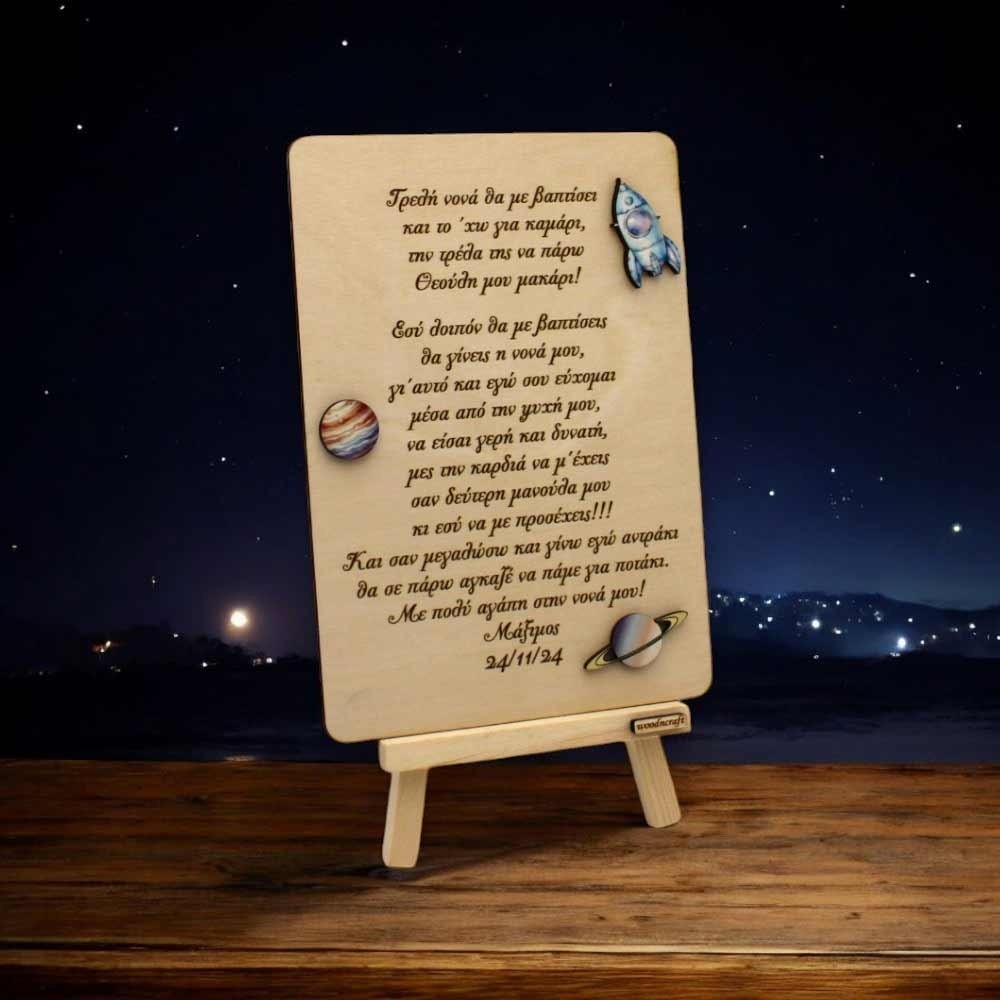 Τρελή νονά θα με βαπτίσει
και το ΄χω για καμάρι,
την τρέλα της να πάρω
Θεούλη μου μακάρι!
Εσύ λοιπόν θα με βαπτίσεις
θα γίνεις η νονά μου,
γι΄αυτό και εγώ σου εύχομαι
μέσα από την ψυχή μου,
να είσαι γερή και δυνατή,
μες την καρδιά να μ΄έχεις
σαν δεύτερη μανούλα μου
κι εσύ να με προσέχεις!!!
Και σαν μεγαλώσω και γίνω εγώ αντράκι
θα σε πάρω αγκαζέ να πάμε για ποτάκι.
Με πολύ αγάπη στην νονά μου!
Μάξιμος
24/11/24
woodncraft